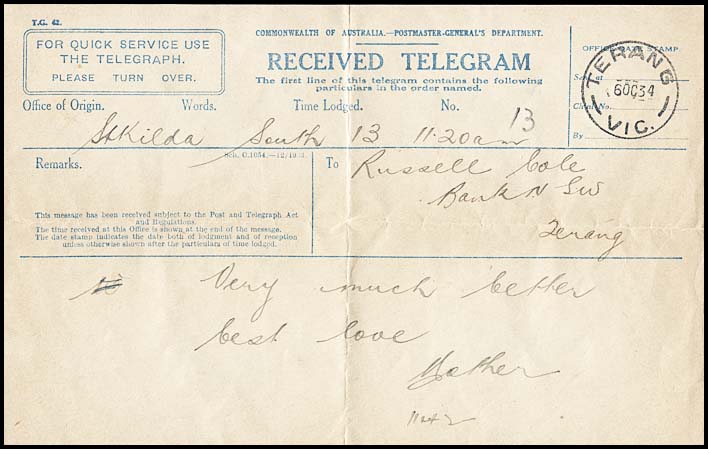 T.G. 42.
FOR QUICK SERVICE USE
THE TELEGRAPH.
PLEASE TURN OVER.
COMMONWEALTH OF AUSTRALIA.—POSTMASTER-GENERAL'S DEPARTMENT.
RECEIVED TELEGRAM
The first line of this telegram contains the following
particulars in the order named.
OFFICE DATE STAMP
TERANG
6OC34
VIC.
Sent at
No.
By
Office of Origin. Words. Time Lodged. No.
St Kilda South 13 11.20am 13
Sch. C.1054.—12/19
Remarks.
To Russell Cole
Bank N SW
Terang
This message has been received subject to the Post and Telegraph Act
and Regulations.
The time received at this Office is shown at the end of the message.
The date stamp indicates the date both of lodgment and of reception
unless otherwise shown after the particulars of time lodged.
Very much better
best love
Mother